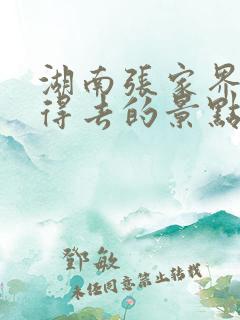 湖南張家界
得去的景點
鄧敏
未經同意禁止轉載